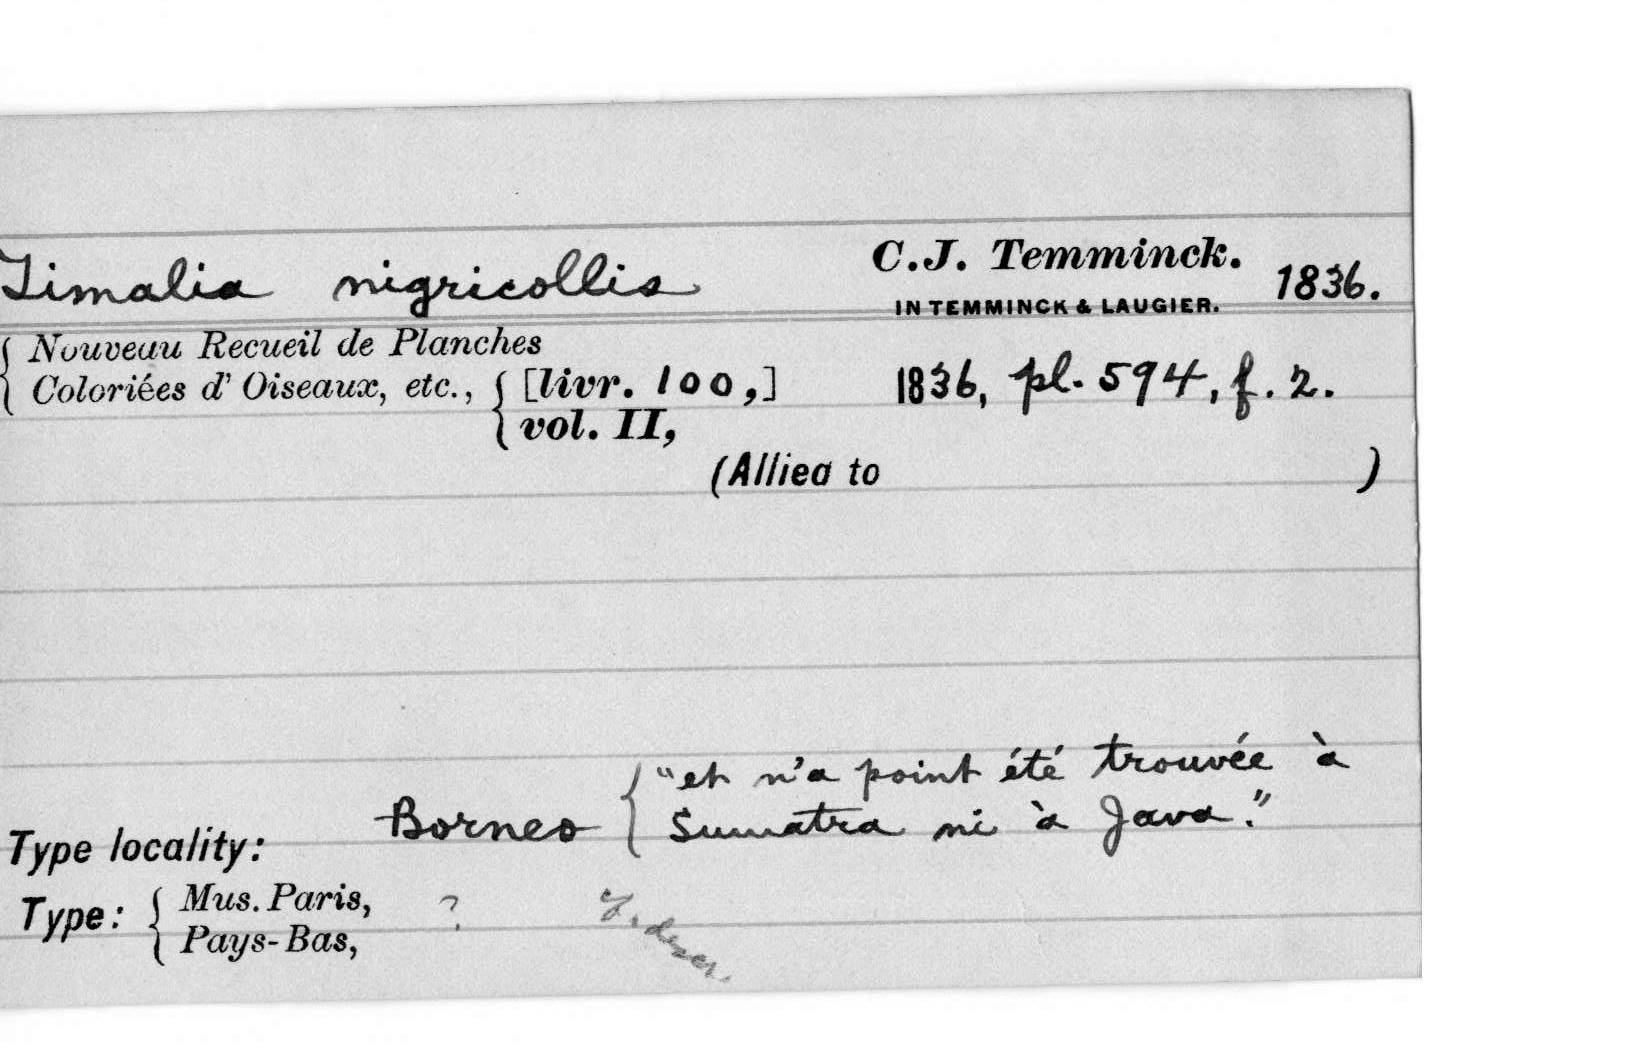 Timalia nigricollis C.J. Temminck. 1836.
IN TEMMINCK & LAUGIER.
Nouveau Recueil de Planches
Coloriées d' Oiseaux, etc., [livr. 100,] 1836, pl. 594, f. 2.
vol. II,
(Allied to )
"et n'a point été trouvée à
Type locality: Borneo Sumatra ni à Java."
Type: Mus. Paris, ?
Pays-Bas,